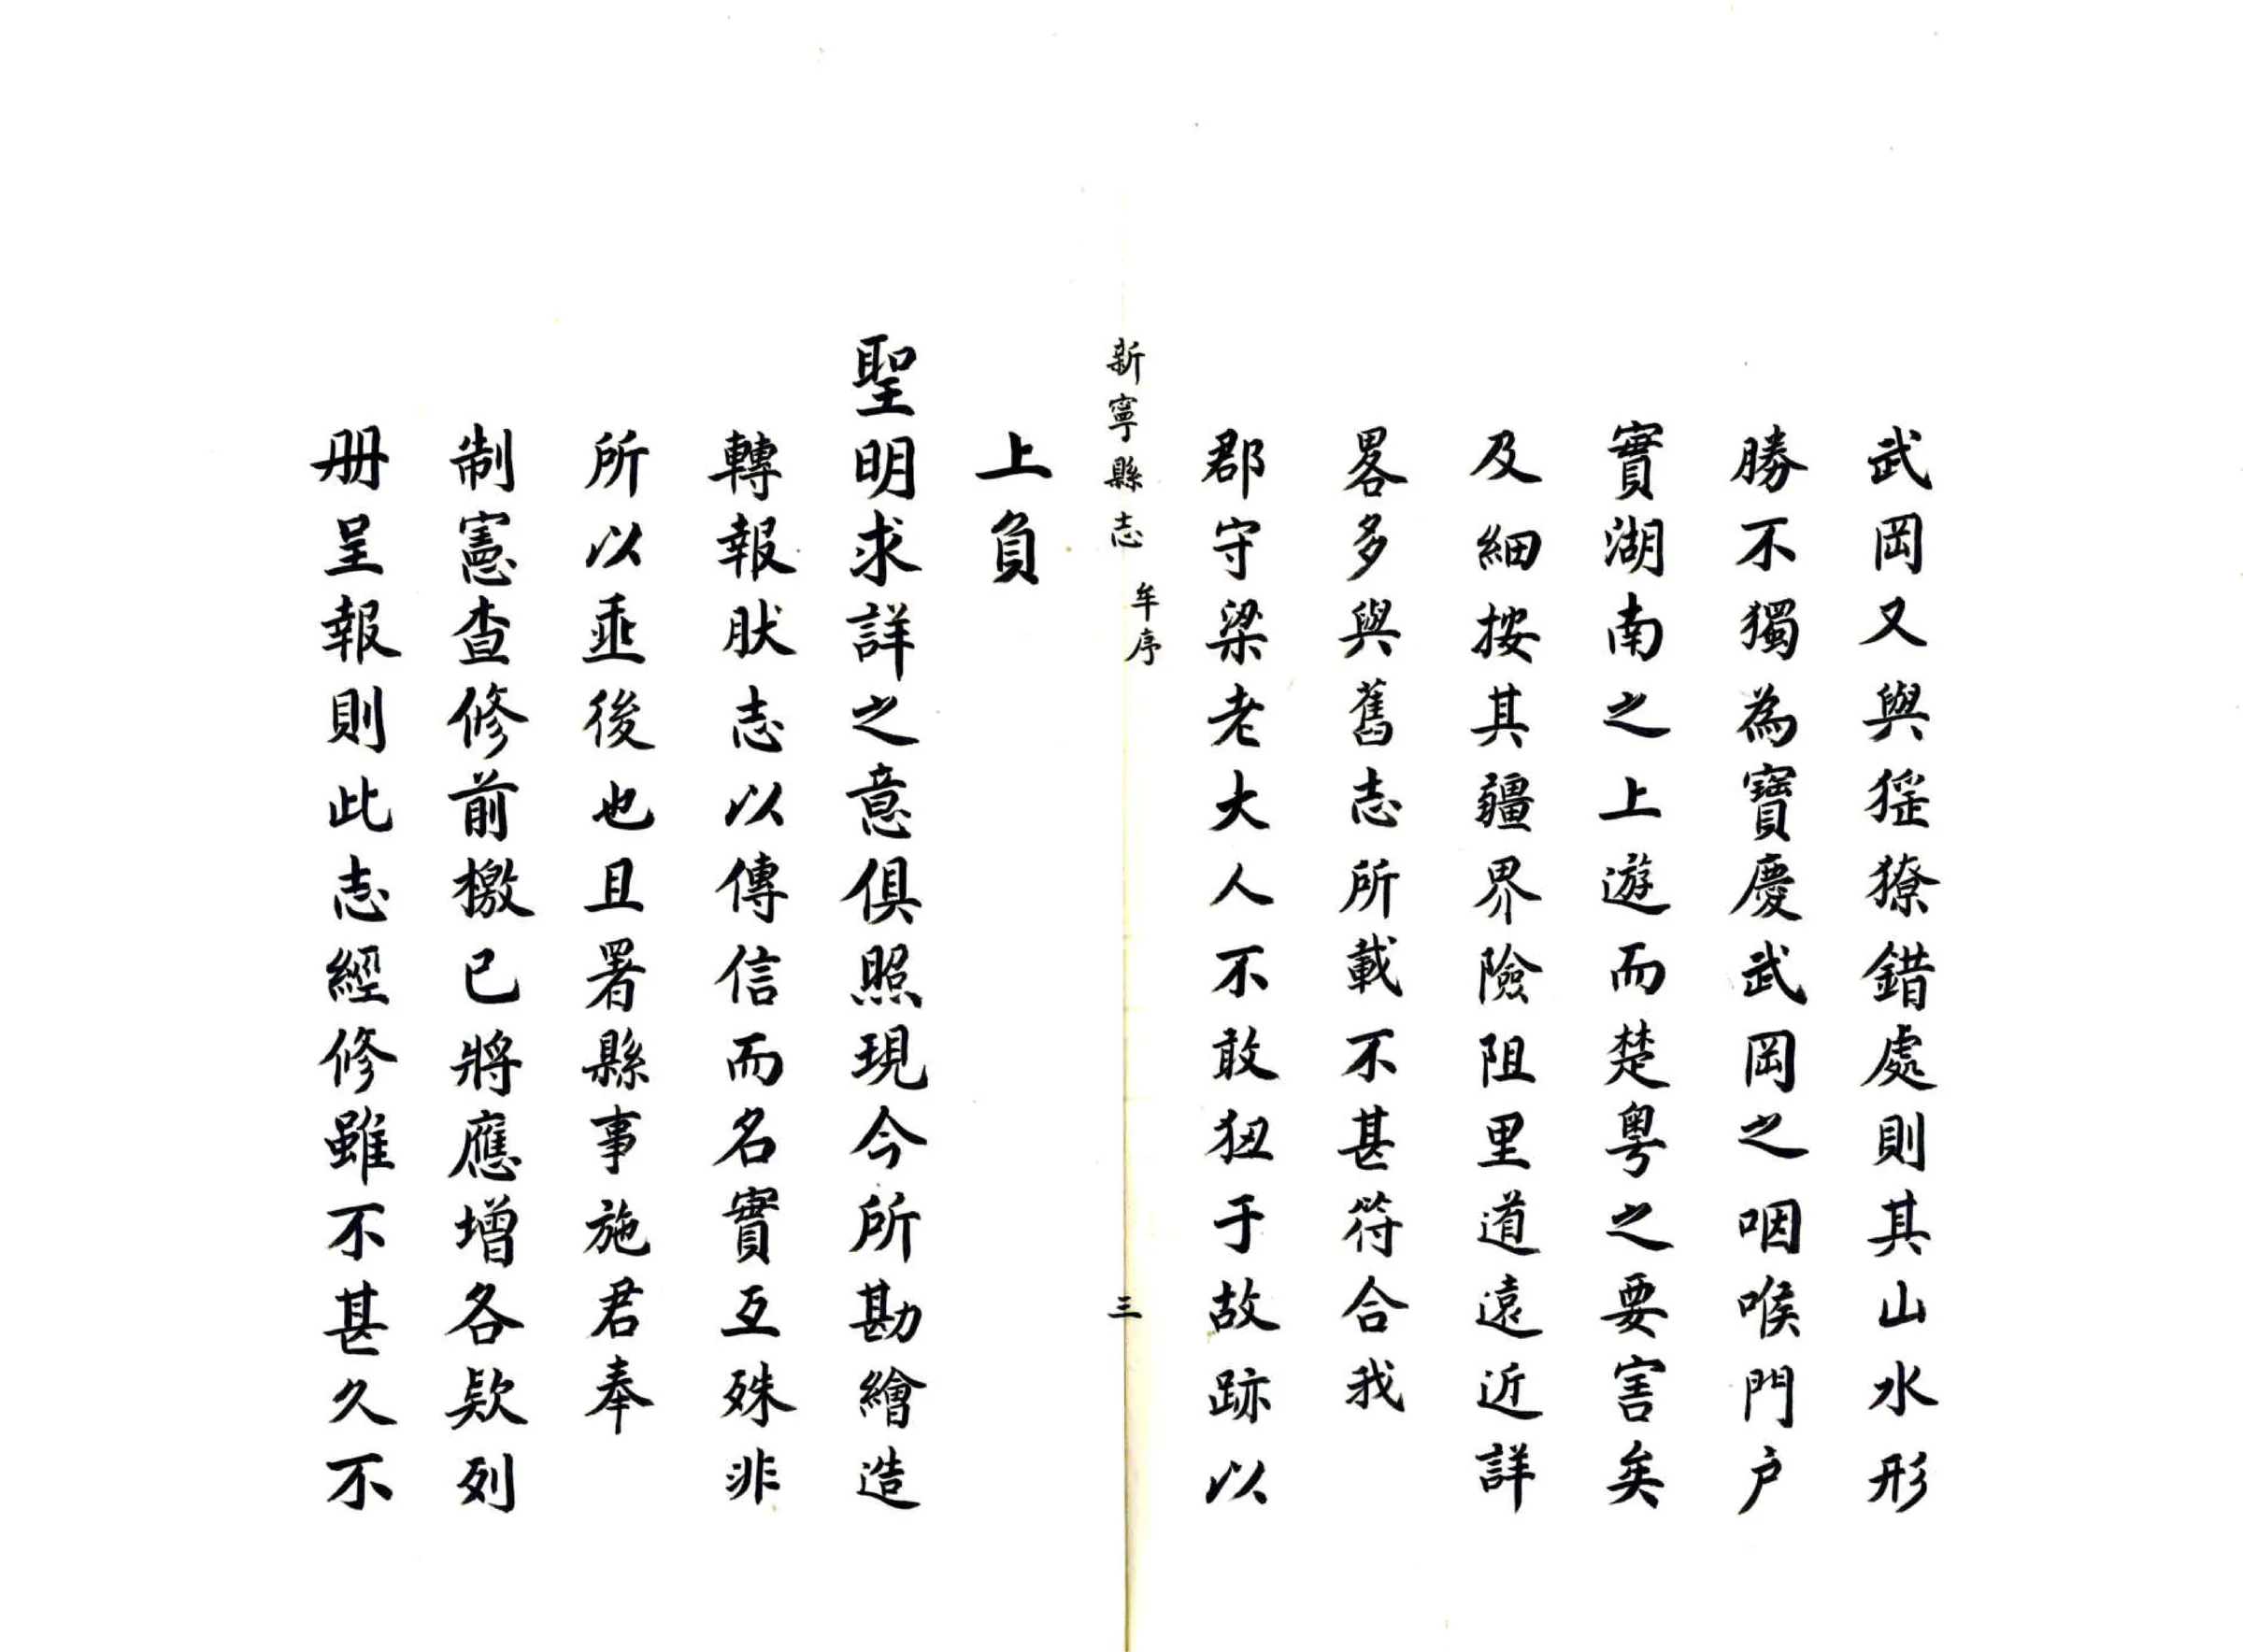 武岡又與猺獠錯處則其山水形
勝不獨為寶慶武岡之咽喉門户
實湖南之上遊而楚粵之要害矣
及細按其疆界險阻里道遠近詳
畧多與舊志所載不甚符合我
郡守梁老大人不敢狃于故跡以
新寧縣志 牟序 三
上負
聖明求詳之意俱照現今所勘繪造
轉報狀志以傳信而名實互殊非
所以垂後也且署縣事施君奉
制憲查修前檄已將應增各欵列
册呈報則此志經修雖不甚久不